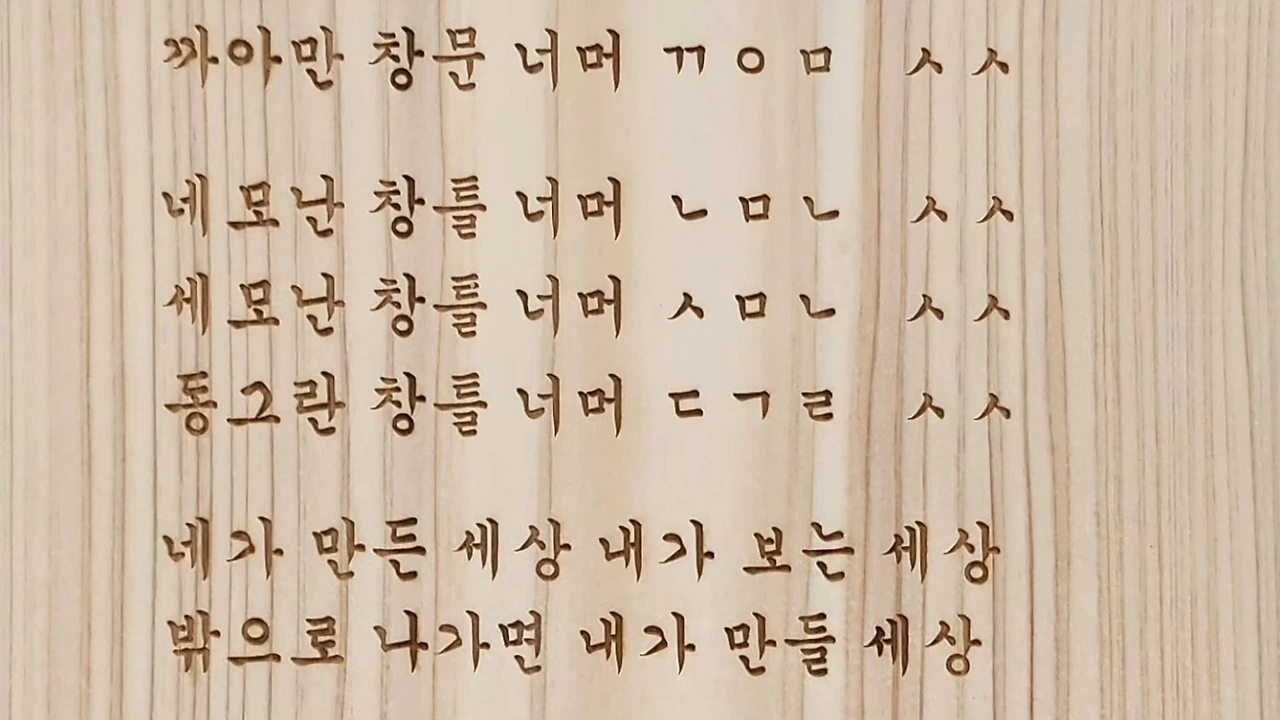 까아만 창문 너머 ㄲ ㅇ ㅁ ㅅ ㅅ
네모난 창틀 너머 ㄴ ㅁ ㄴ ㅅ ㅅ
세모난 창틀 너머 ㅅ ㅁ ㄴ ㅅ ㅅ
동그란 창틀 너머 ㄷ ㄱ ㄹ ㅅ ㅅ
네가 만든 세상 내가 보는 세상
밖으로 나가면 내가 만들 세상